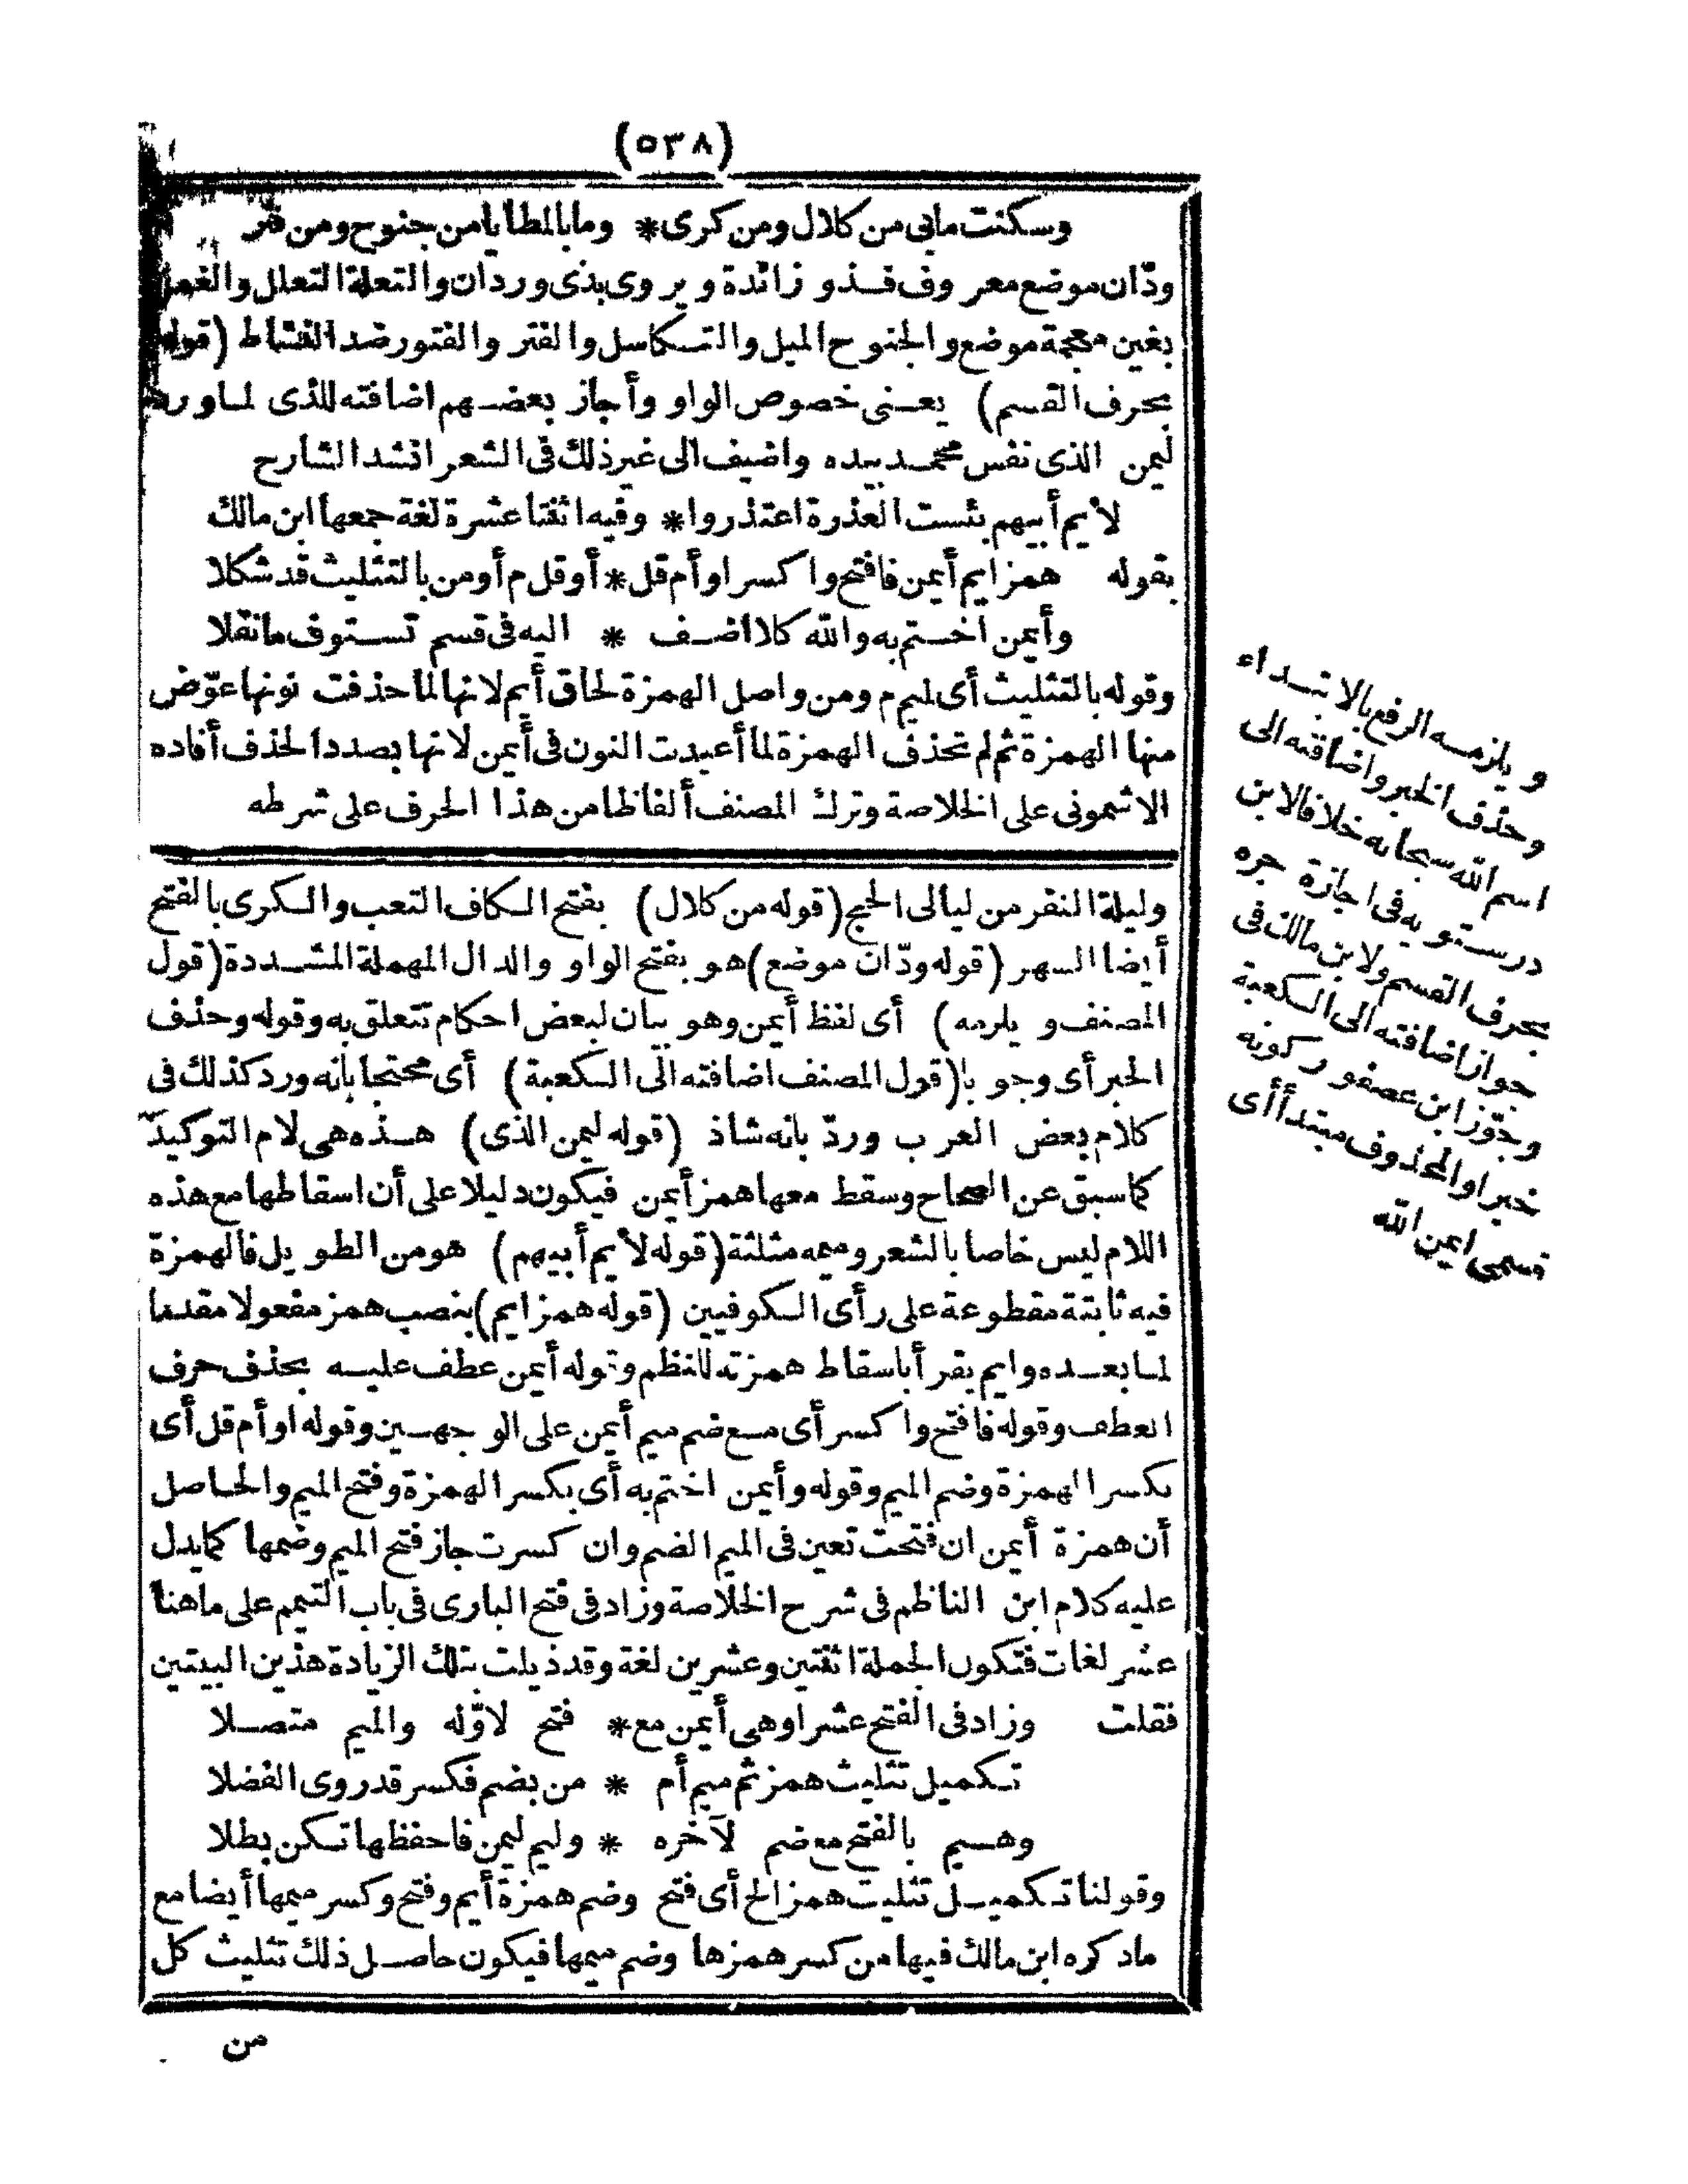 (٥٣٨)
وسكنت مابى من كلال ومن كرى * ومابالمطايا من جنوح ومن فتر
ودّان موضع معروف فذو زائدة ويروى بذى وردان والتعلة التعلل والغمر
بغين معجمة موضع والجنوح الميل والتكاسل والفتر والفتور ضد النشاط (قوله
بحرف القسم) يعنى خصوص الواو وأجاز بعضهم اضافته للذى لما ورد
ليمن الذى نفس محمد بيده واضيف الى غير ذلك فى الشعر انشد الشارح
لأيم أبيهم بئست العذرة اعتذروا * وفيه اثنتا عشرة لغة جمعها ابن مالك
بقوله همز ايم أيمن فافتح واكسر او أم قل * أو قل م أو من بالتثليث قد شكلا
وأيمن اختم به والله كلا اضف * اليه فى قسم تستوف مانقلا
وقوله بالتثليث أى لميم م ومن واصل الهمزة لحاق أيم لانها لما حذفت نونها عوّض
منها الهمزة ثم لم تحذف الهمزة لما أعيدت النون فى أيمن لانها بصدد الحذف أفاده
الاشمونى على الخلاصة وترك المصنف ألفاظا من هذا الحرف على شرطه
ويلزمه الرفع بالابتداء
وحذف الخبر واضافته الى
اسم الله سبحانه خلافا لابن
درستويه فى اجازة جره
بحرف القسم ولابن مالك فى
جواز اضافته الى الكعبة
وجوّز ابن عصفور كونه
خبرا والمحذوف مبتدأ أى
قسمى ايمن الله
وليلة النفر من ليالى الحج (قوله من كلال) بفتح الكاف التعب والكرى بالفتح
أيضا السهر (قوله ودّان موضع) هو بفتح الواو والدال المهملة المشددة (قول
المصنف ويلزمه) أى لفظ أيمن وهو بيان لبعض احكام تتعلق به وقوله وحذف
الخبر أى وجوبا (قول المصنف اضافته الى الكعبة) أى محتجا بانه ورد كذلك فى
كلام بعض العرب وردّ بانه شاذ (قوله ليمن الذى) هذه هى لام التوكيد
كما سبق عن الصحاح وسقط معها همز أيمن فيكون دليلا على أن اسقاطها مع هذه
اللام ليس خاصا بالشعر وميمه مثلثة (قوله لأيم أبيهم) هو من الطويل فالهمزة
فيه ثابتة مقطوعة على رأى الكوفيين (قوله همز ايم) بنصب همز مفعولا مقدما
لما بعده وايم يقرأ باسقاط همزته للنظم وقوله أيمن عطف عليه بحذف حرف
العطف وقوله فافتح واكسر أى مع ضم ميم أيمن على الوجهين وقوله او أم قل أى
بكسر الهمزة وضم الميم وقوله وأيمن اختم به أى بكسر الهمزة وفتح الميم والحاصل
أن همزة أيمن ان فتحت تعين فى الميم الضم وان كسرت جاز فتح الميم وضمها كما يدل
عليه كلام ابن الناظم فى شرح الخلاصة وزاد فى فتح البارى فى باب التيمم على ماهنا
عشر لغات فتكون الجملة اثنتين وعشرين لغة وقد ذيلت بتلك الزيادة هذين البيتين
فقلت وزاد فى الفتح عشرا وهى أيمن مع * فتح لاوّله والميم متصلا
تكميل تثليث همز ثم ميم أم * من بضم فكسر قد روى الفضلا
وهيم بالفتح مع ضم لآخره * وليم ليمن فاحفظها تكن بطلا
وقولنا تكميل تثليث همز الخ أى فتح وضم همزة أيم وفتح وكسر ميمها أيضا مع
ماذكره ابن مالك فيها من كسر همزها وضم ميمها فيكون حاصل ذلك تثليث كل
من